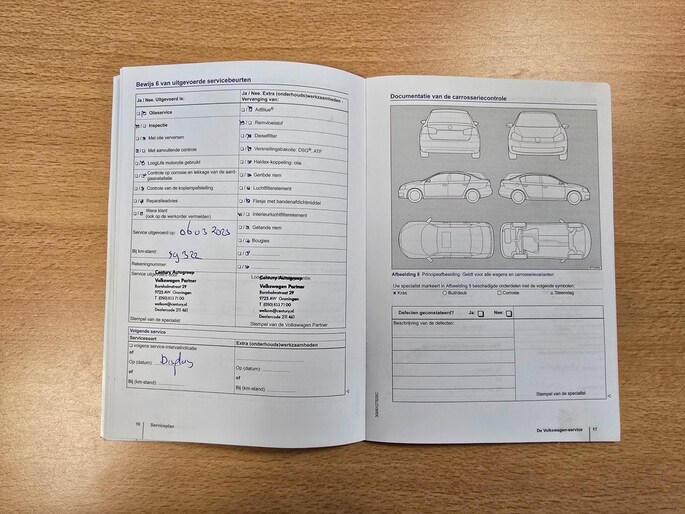 Bewijs 6 van uitgevoerde servicebeurten
Ja / Nee. Uitgevoerd is:
Olieservice
Inspectie
Met olie verversen
Met aanvullende controle
LongLife motorolie gebruikt
Controle op corrosie en lekkage van de aardgasinstallatie
Controle van de koplampafstelling
Reparatieadvies
Wens klant
(ook op de werkorder vermelden)
Service uitgevoerd op: 06 03 2023
Bij km-stand:
Rekeningnummer
Service uitgevoerd door:
Century Autogroep
Volkswagen Partner
Bornholmstraat 29
9723 AW Groningen
T (050) 853 71 00
Stempel van de specialist
Ja / Nee. Extra (onderhouds)werkzaamheden -
Vervanging van:
AdBlue®
Remvloeistof
Dieselfilter
Versnellingsbakolie: DSG®, ATF
Haldex-koppeling: olie
Geribde riem
Luchtfilterelement
Flesje met bandenafdichtmiddel
Interieurluchtfilterelement
Getande riem
Bougies
Century Autogroep
Volkswagen Partner
Bornholmstraat 29
9723 AW Groningen
Stempel van de Volkswagen Partner
Volgende service
Servicesoort
volgens service-intervalindicatie
of
Op (datum)
of
Bij (km-stand):
Extra (onderhouds)werkzaamheden
Op (datum)
of
Bij (km-stand):
16
Serviceplan
Documentatie van de carrosseriecontrole
Afbeelding 8 Principeafbeelding: Geldt voor alle wagens en carrosserievarianten
Uw specialist markeert in Afbeelding 8 beschadigde onderdelen met de volgende symbolen:
Kras
Buil/deuk
Corrosie
Steenslag
Defecten geconstateerd?
Ja:
Nee:
Beschrijving van de defecten:
Stempel van de specialist
De Volkswagen-service
17